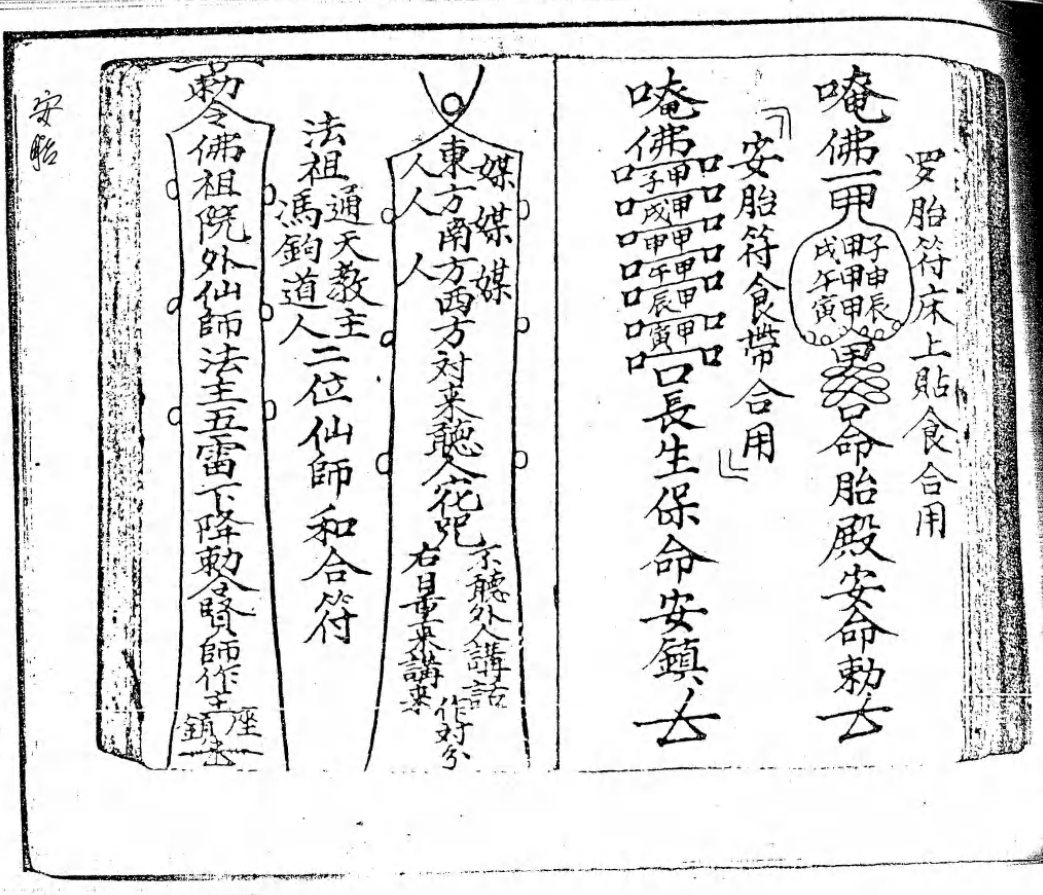 罗胎符床上貼食合用
唵佛
甲子甲申甲辰
甲戌甲午甲寅
命胎殿安命勅
「安胎符食帶合用」
唵佛
口口口口口口口
甲甲甲甲甲甲
子戌申午辰寅
口口口口口口口
口長生保命安鎮
媒媒媒
東方南方西方对来聽令花咒
人人人
不聽外人講話
右
講来
作对分
法祖
通天教主
馮鈎道人
二位仙師和合符
勅令佛祖院外仙師法主五雷下降勅令賢師作主
座
鎮
安胎